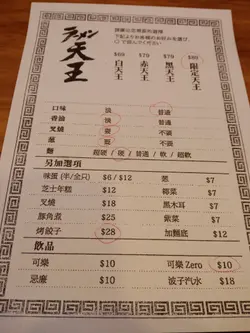 ラーメン
天王
$69 白天王
$79 赤天王
$79 黑天王
$89 限定天王
口味 淡 普通
香油 淡 普通
叉燒 要 不要
蔥 要 不要
麵 超硬 / 硬 / 普通 / 軟 / 超軟
另加選項
味蛋 (半/全只) $6 / $12 蔥 $7
芝士年糕 $12 椰菜 $7
叉燒 $18 黑木耳 $7
豚角煮 $25 紫菜 $7
烤餃子 $28 加麵底 $12
飲品
可樂 $10 可樂 Zero $10
忌廉 $10 波子汽水 $18